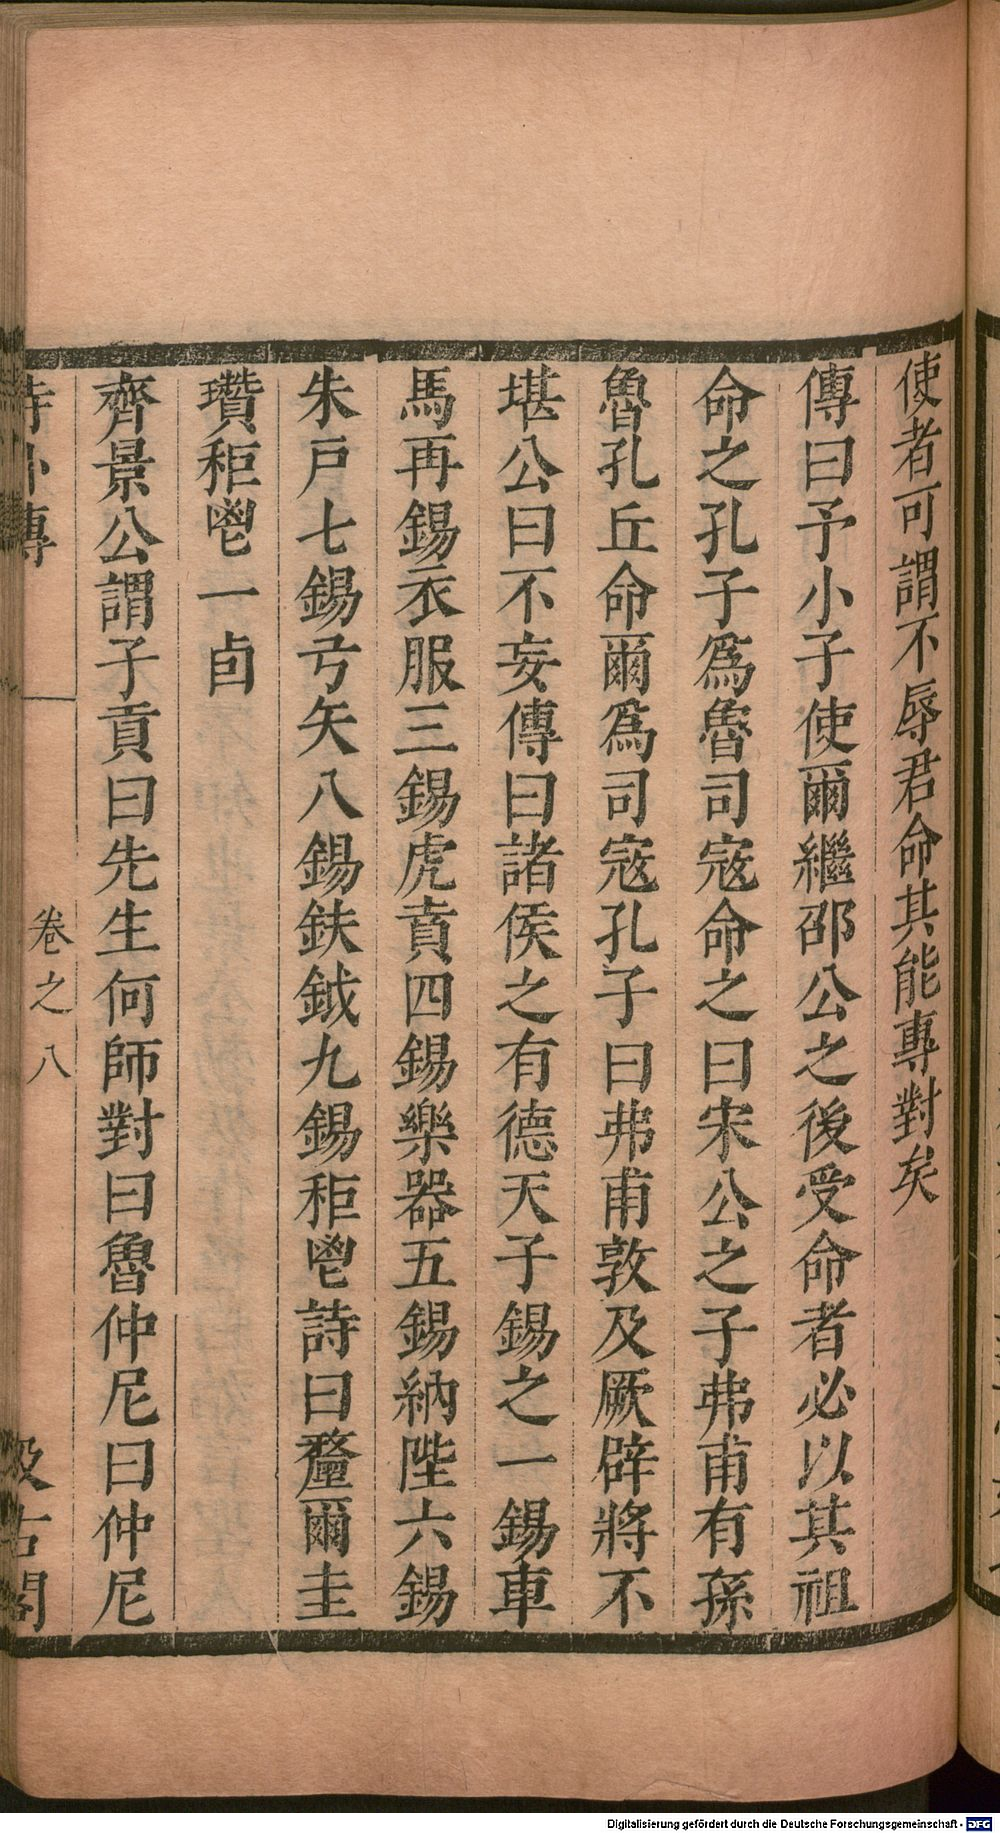 使者可謂不辱君命其能專對矣
傳曰予小子使爾繼邵公之後受命者必以其祖
命之孔子爲魯司寇命之曰宋公之子弗甫有孫
魯孔丘命爾爲司寇孔子曰弗甫敦及厥辟將不
堪公曰不妄傳曰諸侯之有德天子錫之一錫車
馬再錫衣服三錫虎賁四錫樂器五錫納陛六錫
朱戸七錫弓矢八錫鈇鉞九錫秬鬯詩曰釐爾圭
瓚秬鬯一卣
齊景公謂子貢曰先生何師對曰魯仲尼曰仲尼
詩外傳 卷之八 汲古閣
Digitalisierung gefördert durch die Deutsche Forschungsgemeinschaft - DFG